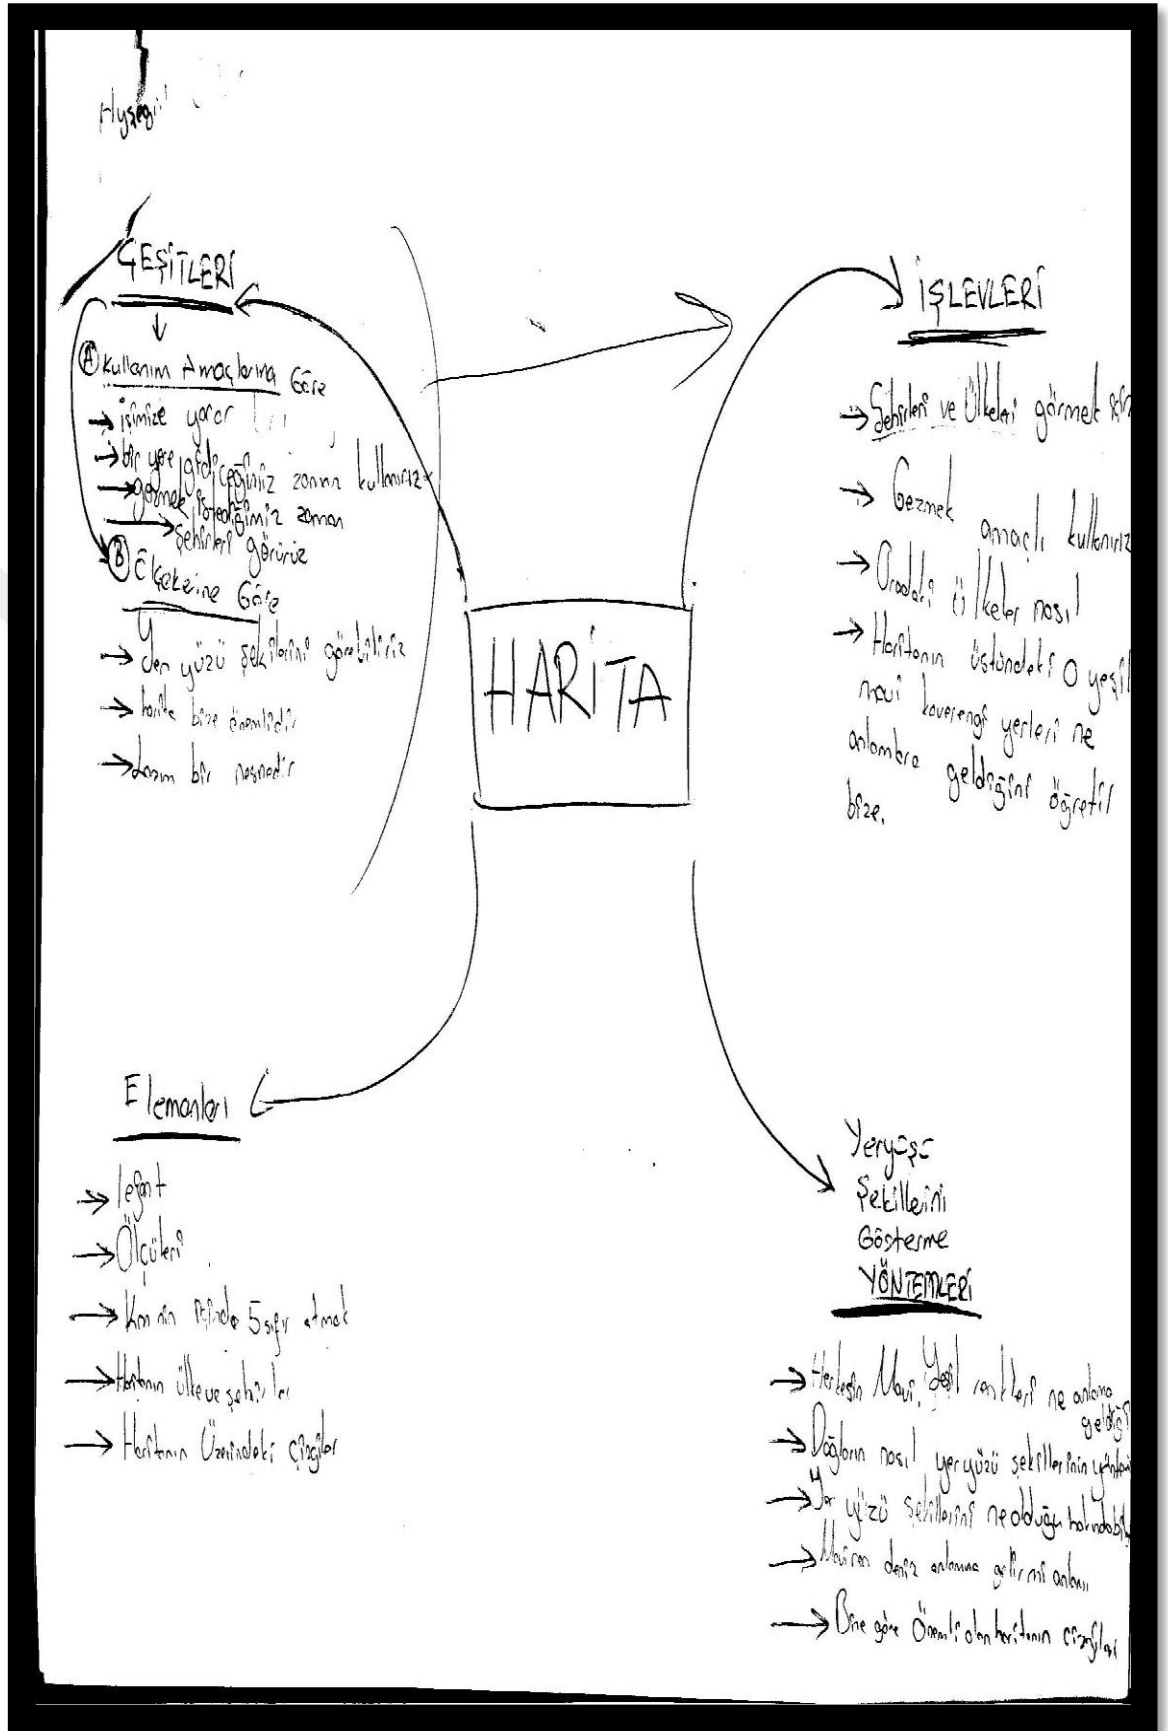 Ayşegül
ÇEŞİTLERİ
A Kullanım Amaçlarına Göre
→ işimize yarar
→ bir yere gidiceğimiz zaman kullanırız
→ görmek istediğimiz zaman
→ şehirleri görürüz
B Ölçekerine Göre
→ Yer yüzü şekilerini görebiliriz
→ bize önemlidir
→ Lazım bir nesnedir
HARİTA
İŞLEVLERİ
→ Şehirleri ve Ülkeleri görmek için
→ Gezmek amaçlı kullanırız
→ Oradaki ülkeler nasıl
→ Haritanın üstündeki O yeşil
mavi kaverengi yerleri ne
anlamlara geldiğini öğretir
bize.
Elemanları
→ lejant
→ Ölçüleri
→ Km nin içinde 5 sıfır atmak
→ Haritanın ülke ve şehirler
→ Haritanın Üzerindeki çizgiler
Yeryüşü
Şekillerini
Gösterme
YÖNTEMLERİ
→ Herkesin Mavi, Yeşil renkleri ne anlama
geldiği
→ Dağların nasıl yeryüzü şekillerinin
→ Yer yüzü şekillerini ne olduğu
→ deniz anlamına gelir mi
→ Bize göre Önemli olan haritanın çizgileri